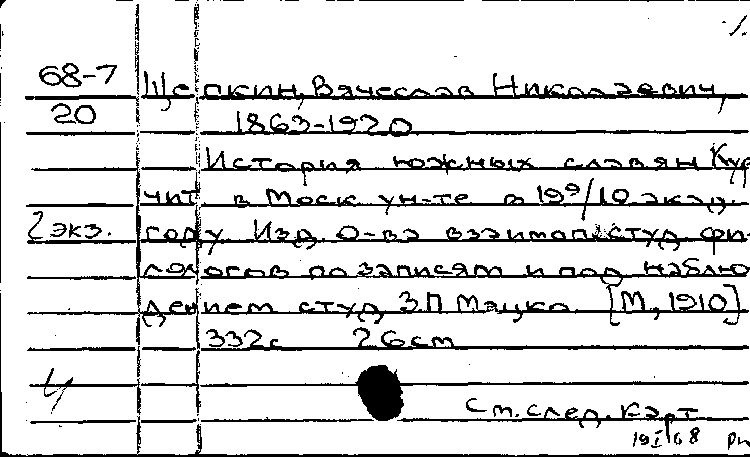 68-7 Щепкин, Вячеслав Николаевич,
20 1863-1920
История южных славян Кур
чит в Моск ун-те в 19 09/10 акад.
2 экз. году. Изд. О-ва взаимопстуд фи-
лологов по записям и под наблю
дением студ З.П Мацко. [М, 1910]
332с 26cm
См. след. карт
19 I 68